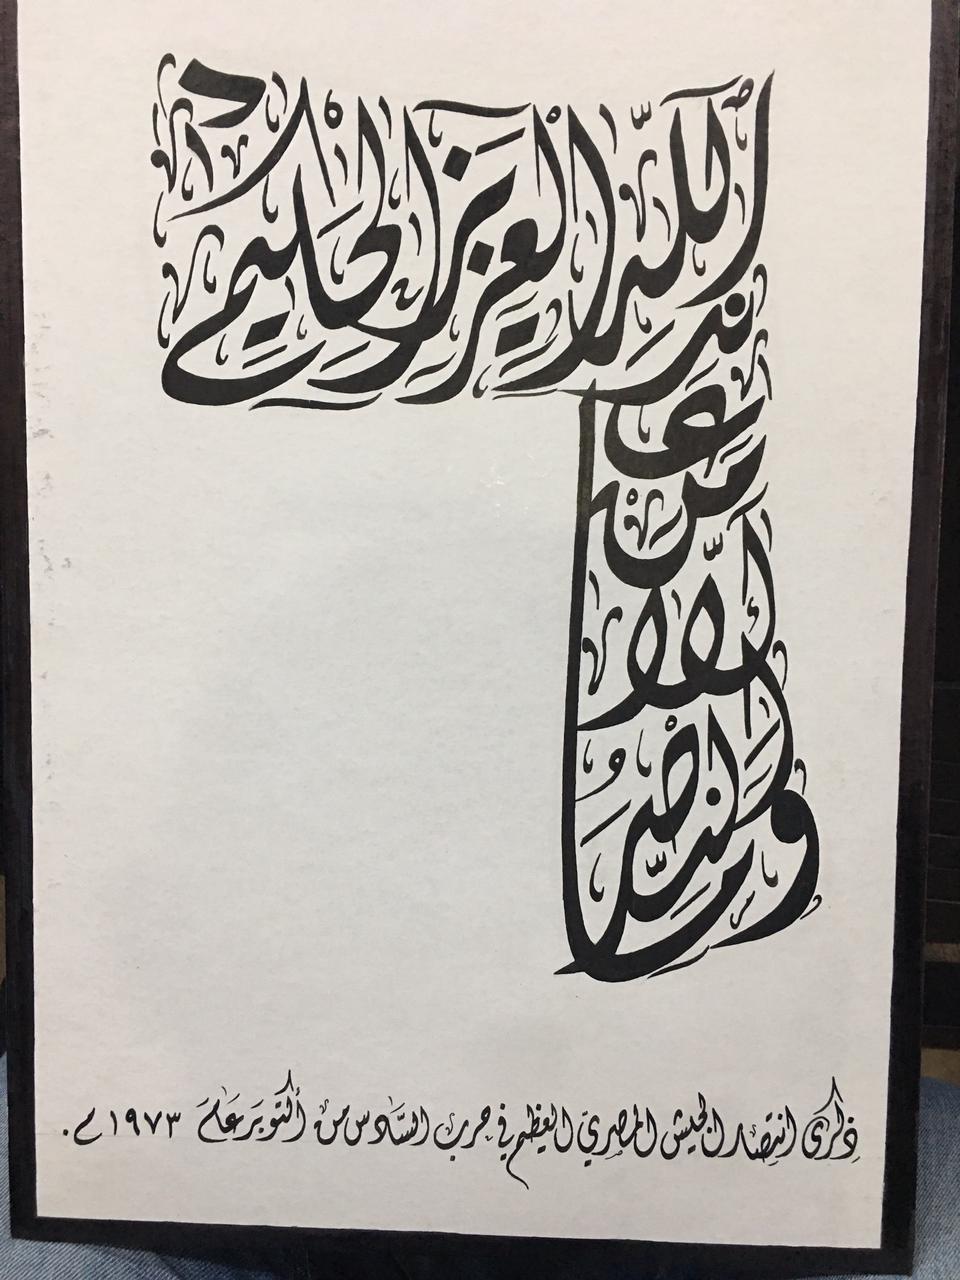 وما النصر إلا من عند الله العزيز الحكيم
ذكرى انتصار الجيش المصري العظيم في حرب السادس من أكتوبر عام ١٩٧٣ م.